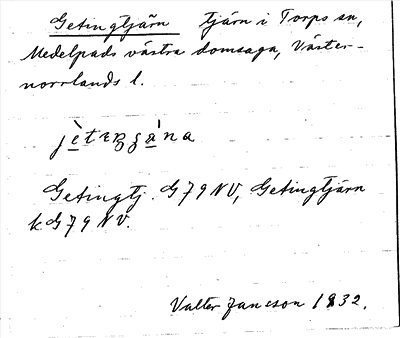 Getingtjärn tjärn i Torps sn,
Medelpads västra domsaga, Väster-
norrlands l.
Getingtj. G79NV, Getingtjärn
k G79NV.
Valter Jansson 1932.